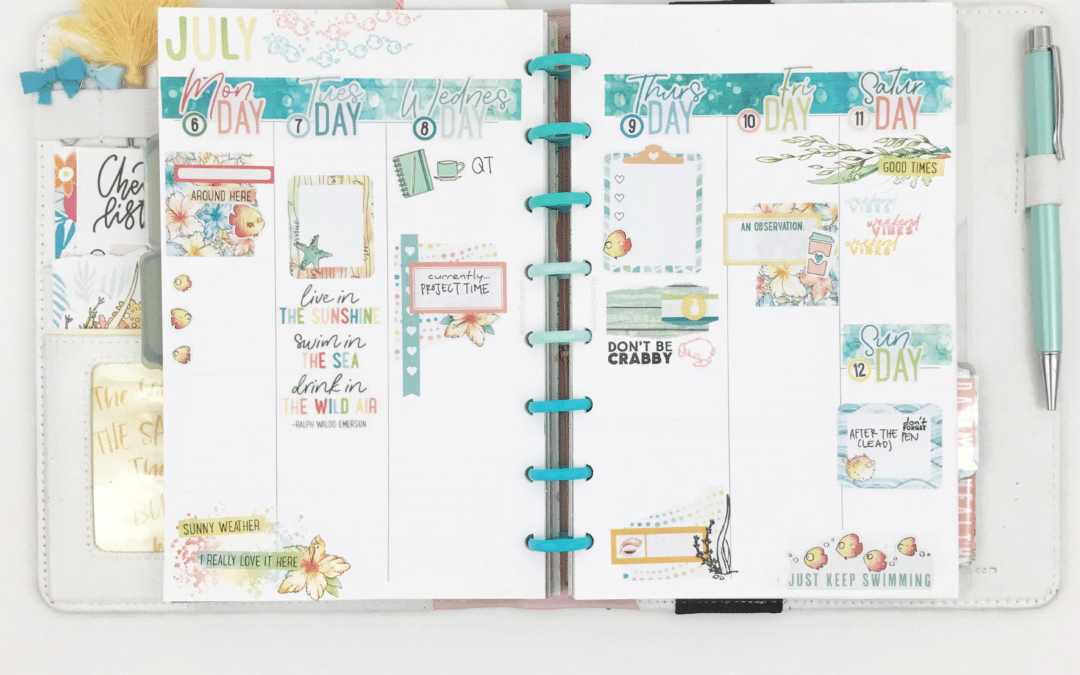 JULY
Mon
6 DAY
AROUND HERE
Tues
7 DAY
live in
THE SUNSHINE
swim in
THE SEA
drink in
THE WILD AIR
-RALPH WALDO EMERSON
Wednes
8 DAY
QT
currently...
PROJECT TIME
SUNNY WEATHER
I REALLY LOVE IT HERE
Thurs
9 DAY
DON'T BE
CRABBY
Fri
10 DAY
AN OBSERVATION:
Satur
11 DAY
GOOD TIMES
weekend
VIBES
weekend
VIBES
weekend
VIBES
Sun
12 DAY
don't
FORGET
AFTER THE PEN
(LEAD)
JUST KEEP SWIMMING
Check
list
THE